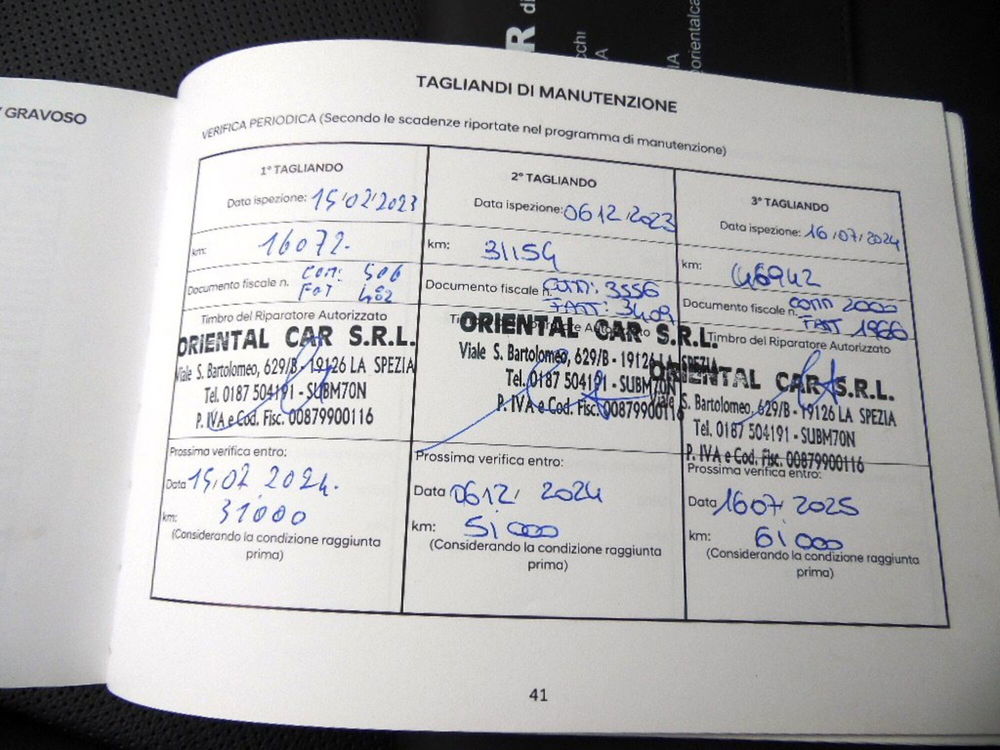 R di
cchi
A
IA
orientalca
GRAVOSO
TAGLIANDI DI MANUTENZIONE
VERIFICA PERIODICA (Secondo le scadenze riportate nel programma di manutenzione)
1° TAGLIANDO
Data ispezione: 15/02/2023
km: 16072.
Documento fiscale n. COM: 506
FAT 482
Timbro del Riparatore Autorizzato
ORIENTAL CAR S.R.L.
Viale S. Bartolomeo, 629/B - 19126 LA SPEZIA
Tel. 0187 504191 - SUBM70N
P. IVA e Cod. Fisc. 00879900116
Prossima verifica entro:
Data 15.02.2024.
km: 31000
(Considerando la condizione raggiunta
prima)
2° TAGLIANDO
Data ispezione: 06 12 2023
km: 31154
Documento fiscale n. COMM: 3556
FATT: 3409
ORIENTAL CAR S.R.L.
Viale S. Bartolomeo, 629/B - 19126 LA SPEZIA
Tel. 0187 504191 - SUBM70N
P. IVA e Cod. Fisc. 00879900116
Prossima verifica entro:
Data 06 12/ 2024
km: 51000
(Considerando la condizione raggiunta
prima)
3° TAGLIANDO
Data ispezione: 16/07/2024
km: 46942
Documento fiscale n. COMM 2000
FATT 1966
Timbro del Riparatore Autorizzato
ORIENTAL CAR S.R.L.
Viale S. Bartolomeo, 629/B - 19126 LA SPEZIA
Tel. 0187 504191 - SUBM70N
P. IVA e Cod. Fisc. 00879900116
Prossima verifica entro:
Data 1607/ 2025
km: 61000
(Considerando la condizione raggiunta
prima)
41